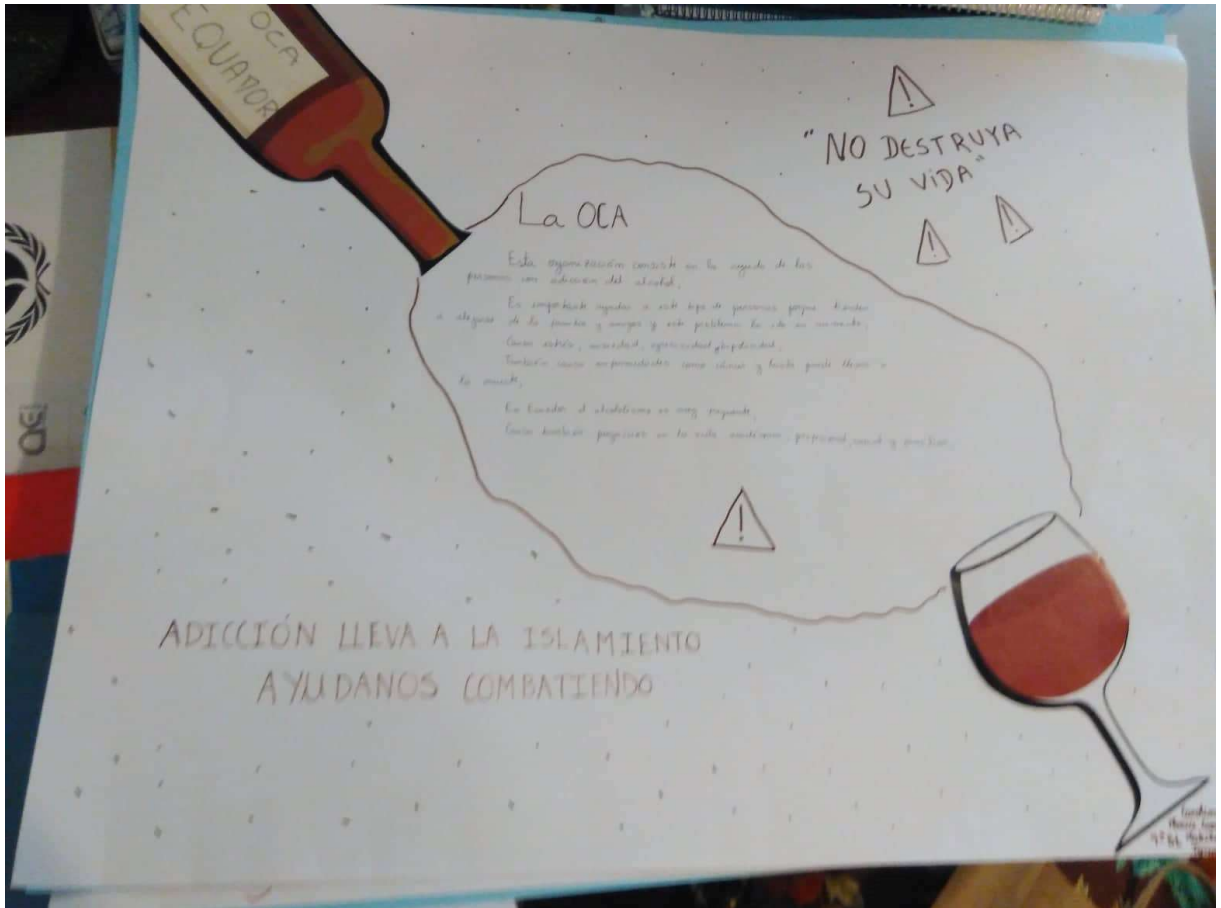 OCA
EQUADOR
"NO DESTRUYA
SU VIDA"
La OCA
Esta organización consiste en la ayuda de las
personas con adiccion del alcohol.
Es importante ayudar a este tipo de personas porque tienden
a alegarse de la familia y amigos y este problema ha ido en aumento.
Causa estrés, ansiedad,
También causa enfermedades como cáncer y hasta puede llevar a
la muerte.
En Ecuador el alcoholismo es muy
Causa en la vida social y familiar.
ADICCIÓN LLEVA A LA ISLAMIENTO
AYUDANOS COMBATIENDO